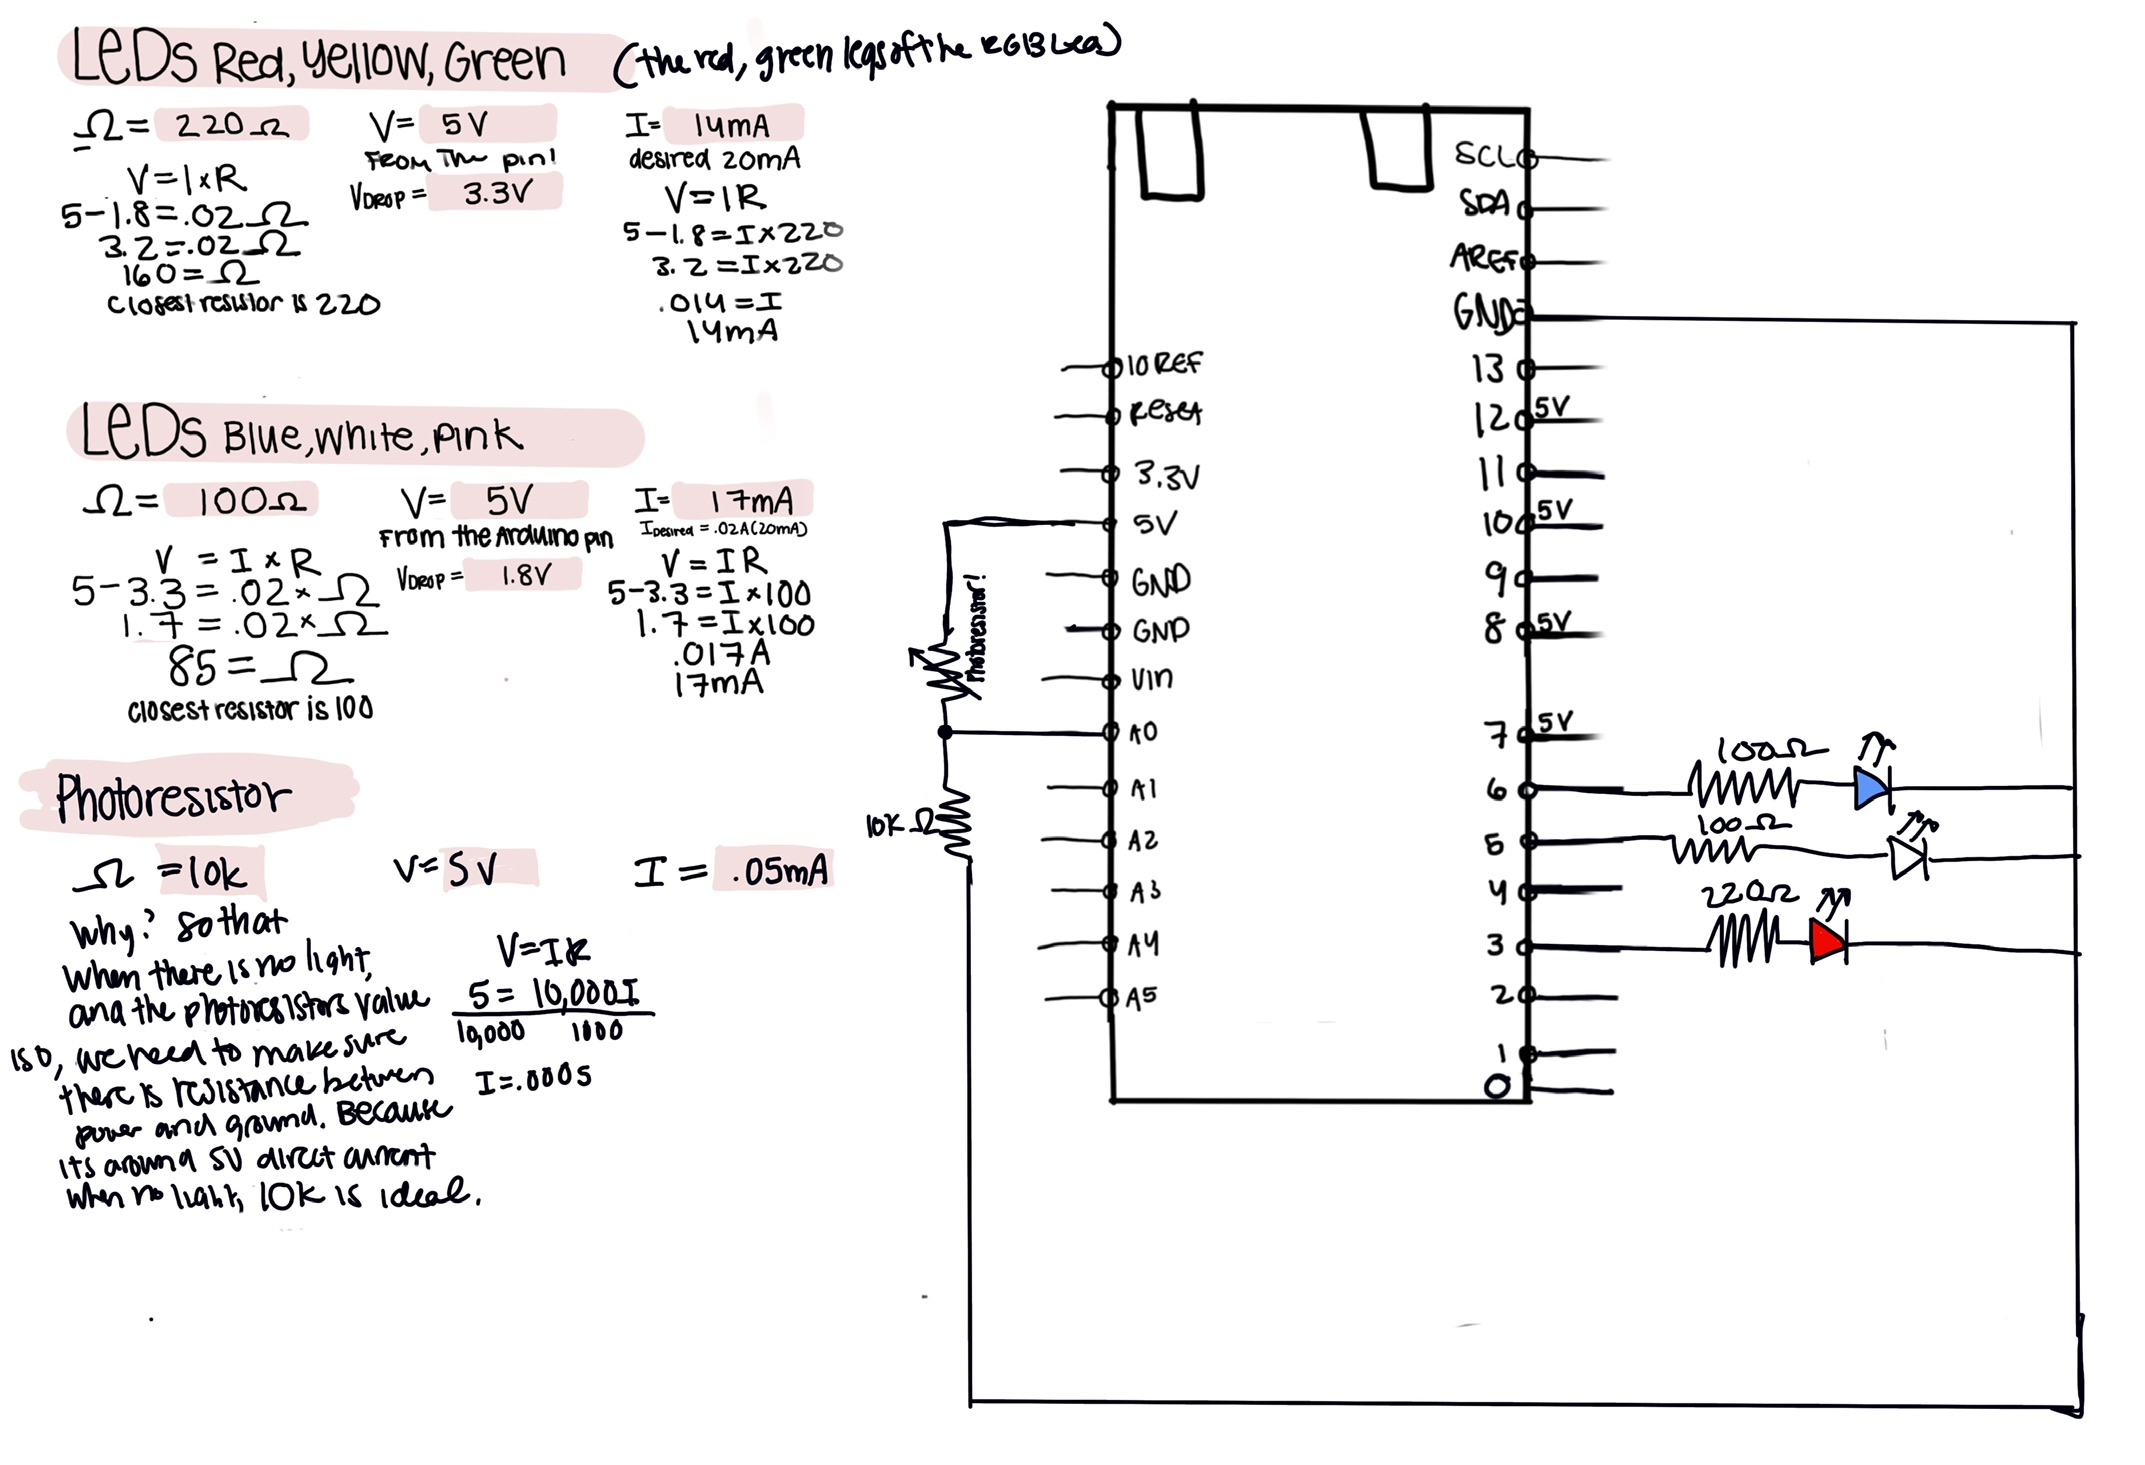 LEDs Red, Yellow, Green (the red, green legs of the RGB Led)
Ω = 220Ω
V = I x R
5-1.8=.02Ω
3.2=.02Ω
160=Ω
closest resistor is 220
V= 5V
FROM The pin!
VDROP = 3.3V
I= 14mA
desired 20mA
V=IR
5-1.8=Ix220
3.2=Ix220
.014=I
14mA
LEDs Blue, White, Pink
Ω= 100Ω
V = I x R
5-3.3 = .02xΩ
1.7 = .02xΩ
85=Ω
closest resistor is 100
V= 5V
From the Arduino pin
VDROP= 1.8V
I= 17mA
IDesired = .02A(20mA)
V=IR
5-3.3=Ix100
1.7=Ix100
.017A
17mA
Photoresistor
Ω =10k
Why? So that
when there is no light,
and the photoresistors value
is 0, we need to make sure
there is resistance between
power and ground. Because
its around 5V direct current
when no light, 10k is ideal.
V=5V
V=IR
5= 10,000I
10,000 1000
I=.0005
I = .05mA
IOREF
Reset
3.3V
5V
GND
GND
Vin
A0
A1
A2
A3
A4
A5
Photoresistor!
10K Ω
SCL
SDA
AREF
GND
13
12 5V
11
10 5V
9
8 5V
7 5V
6
5
4
3
2
1
0
100Ω
100Ω
220Ω